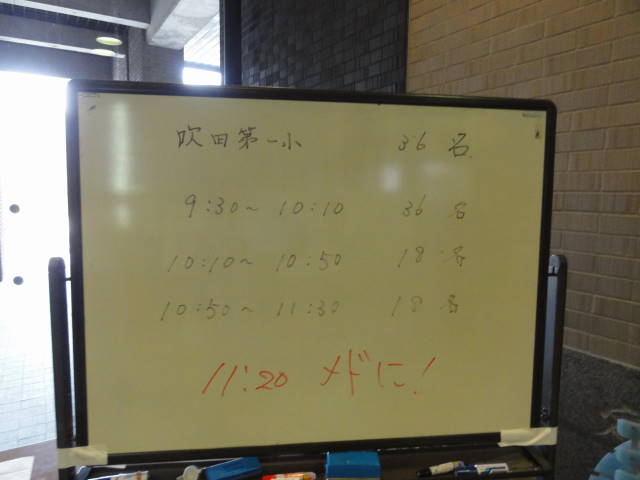 吹田第一小 36名
9:30～10:10 36名
10:10～10:50 18名
10:50～11:30 18名
11:20 メドに!